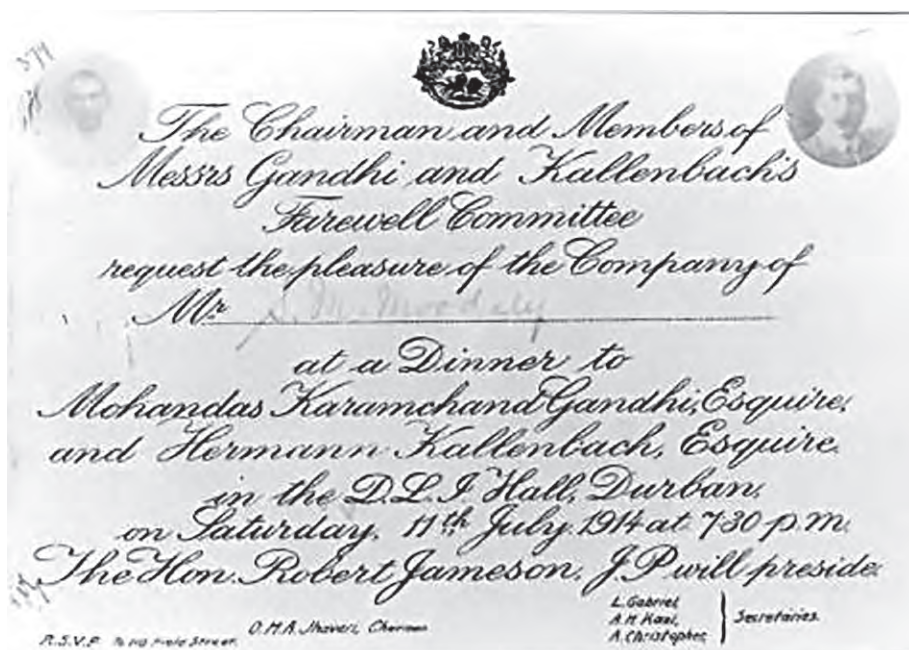 374
The Chairman and Members of
Messrs Gandhi and Kallenbach's
Farewell Committee
request the pleasure of the Company of
Mr S. M. Moodaley
at a Dinner to
Mohandas Karamchand Gandhi, Esquire,
and Hermann Kallenbach, Esquire.
in the D.L.I Hall, Durban,
on Saturday, 11th July, 1914 at 7.30 p.m.
The Hon. Robert Jameson, J.P will preside.
R.S.V.P. Field Street. O.M.A. Jhaveri, Chairman
L. Gabriel,
A. H. Kazi,
A. Christopher,
Secretaries.